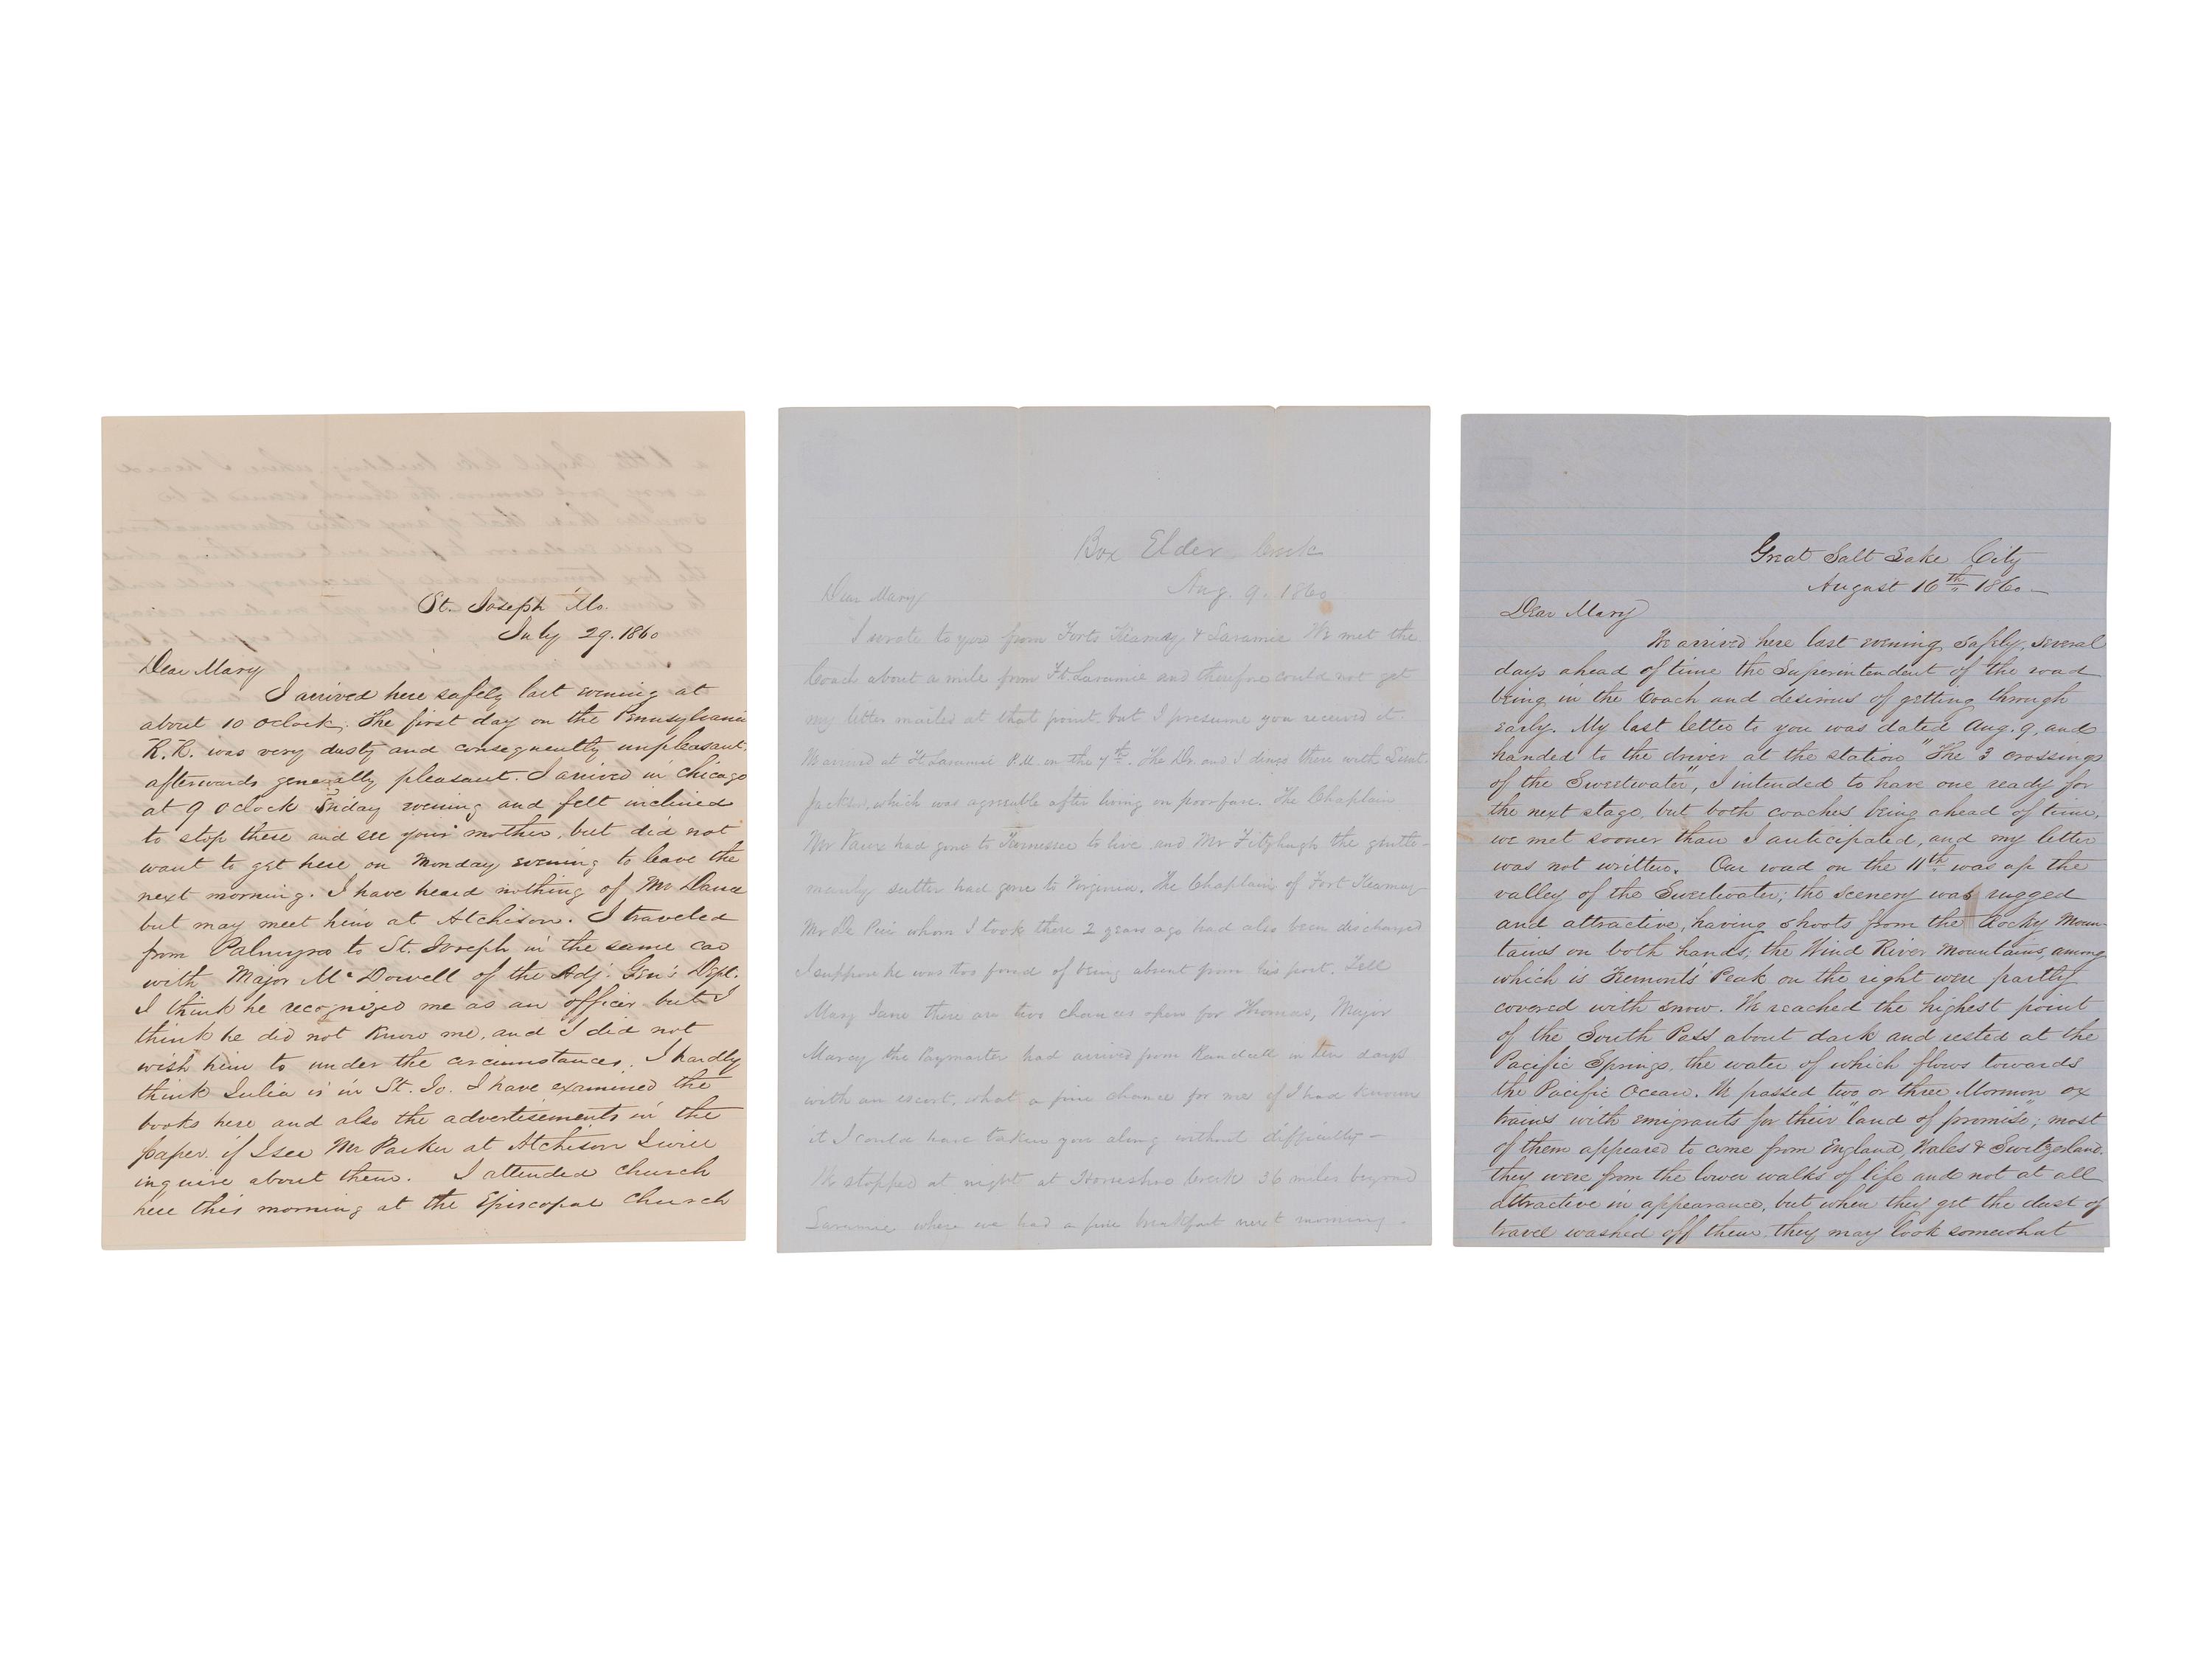 St. Joseph Mo.
July 29. 1860
Dear Mary
I arrived here safely last evening at
about 10 oclock. The first day on the Pennsylvania
R.R. was very dusty and consequently unpleasant,
afterwards generally pleasant. I arrived in Chicago
at 9 oclock Friday evening and felt inclined
to stop there and see your mother, but did not
want to get here on Monday evening to leave the
next morning. I have heard nothing of Mr Dana
but may meet him at Atchison. I traveled
from Palmyra to St. Joseph in the same car
with Major McDowell of the Adj. Gen's Dept.
I think he recognized me as an officer but I
think he did not know me, and I did not
wish him to under the circumstances. I hardly
think Julia is in St. Jo. I have examined the
books here and also the advertisements in the
paper. if I see Mr Parker at Atchison I will
inquire about them. I attended church
here this morning at the Episcopal Church
Box Elder Creek
Aug. 9. 1860
Dear Mary
I wrote to you from Forts Kearney & Laramie We met the
Coach about a mile from Ft. Laramie and therefore could not get
my letter mailed at that point. but I presume you received it.
We arrived at Ft Laramie P.M. on the 7th. The Dr. and I dined there with Lieut.
which was agreeable after living on poor fare. The Chaplain
Mr Vaux had gone to Tennessee to live and Mr Fitzhugh the gentle-
manly sutler had gone to Virginia. The Chaplain of Fort Kearney
Mr De whom I took there 2 years ago had also been discharged
I suppose he was too fond of being absent from his post. Tell
Mary Jane there are two chances open for Thomas, Major
the Paymaster had arrived from in ten days
with an escort, what a fine chance for me if I had known
it I could have taken you along without difficulty -
We stopped at night at Horseshoe Creek 36 miles beyond
Laramie where we had a fine breakfast next morning.
Great Salt Lake City
August 16th 1860 —
Dear Mary
We arrived here last evening safely, several
days ahead of time the Superintendent of the road
being in the Coach and desirous of getting through
early. My last letter to you was dated Aug. 9, and
handed to the driver at the station "The 3 crossings
of the Sweetwater", I intended to have one ready for
the next stage, but both coaches being ahead of time,
we met sooner than I anticipated, and my letter
was not written. Our road on the 11th was up the
valley of the Sweetwater; the scenery was rugged
and attractive, having shoots from the Rocky Moun-
tains on both hands, the Wind River Mountains, among
which is Fremont's Peak on the right were partly
covered with snow. We reached the highest point
of the South Pass about dark and rested at the
Pacific Springs, the water of which flows towards
the Pacific Ocean. We passed two or three Mormon ox
trains with emigrants for their "land of promise"; most
of them appeared to come from England, Wales & Switzerland.
they were from the lower walks of life and not at all
attractive in appearance, but when they get the dust of
travel washed off them they may look somewhat